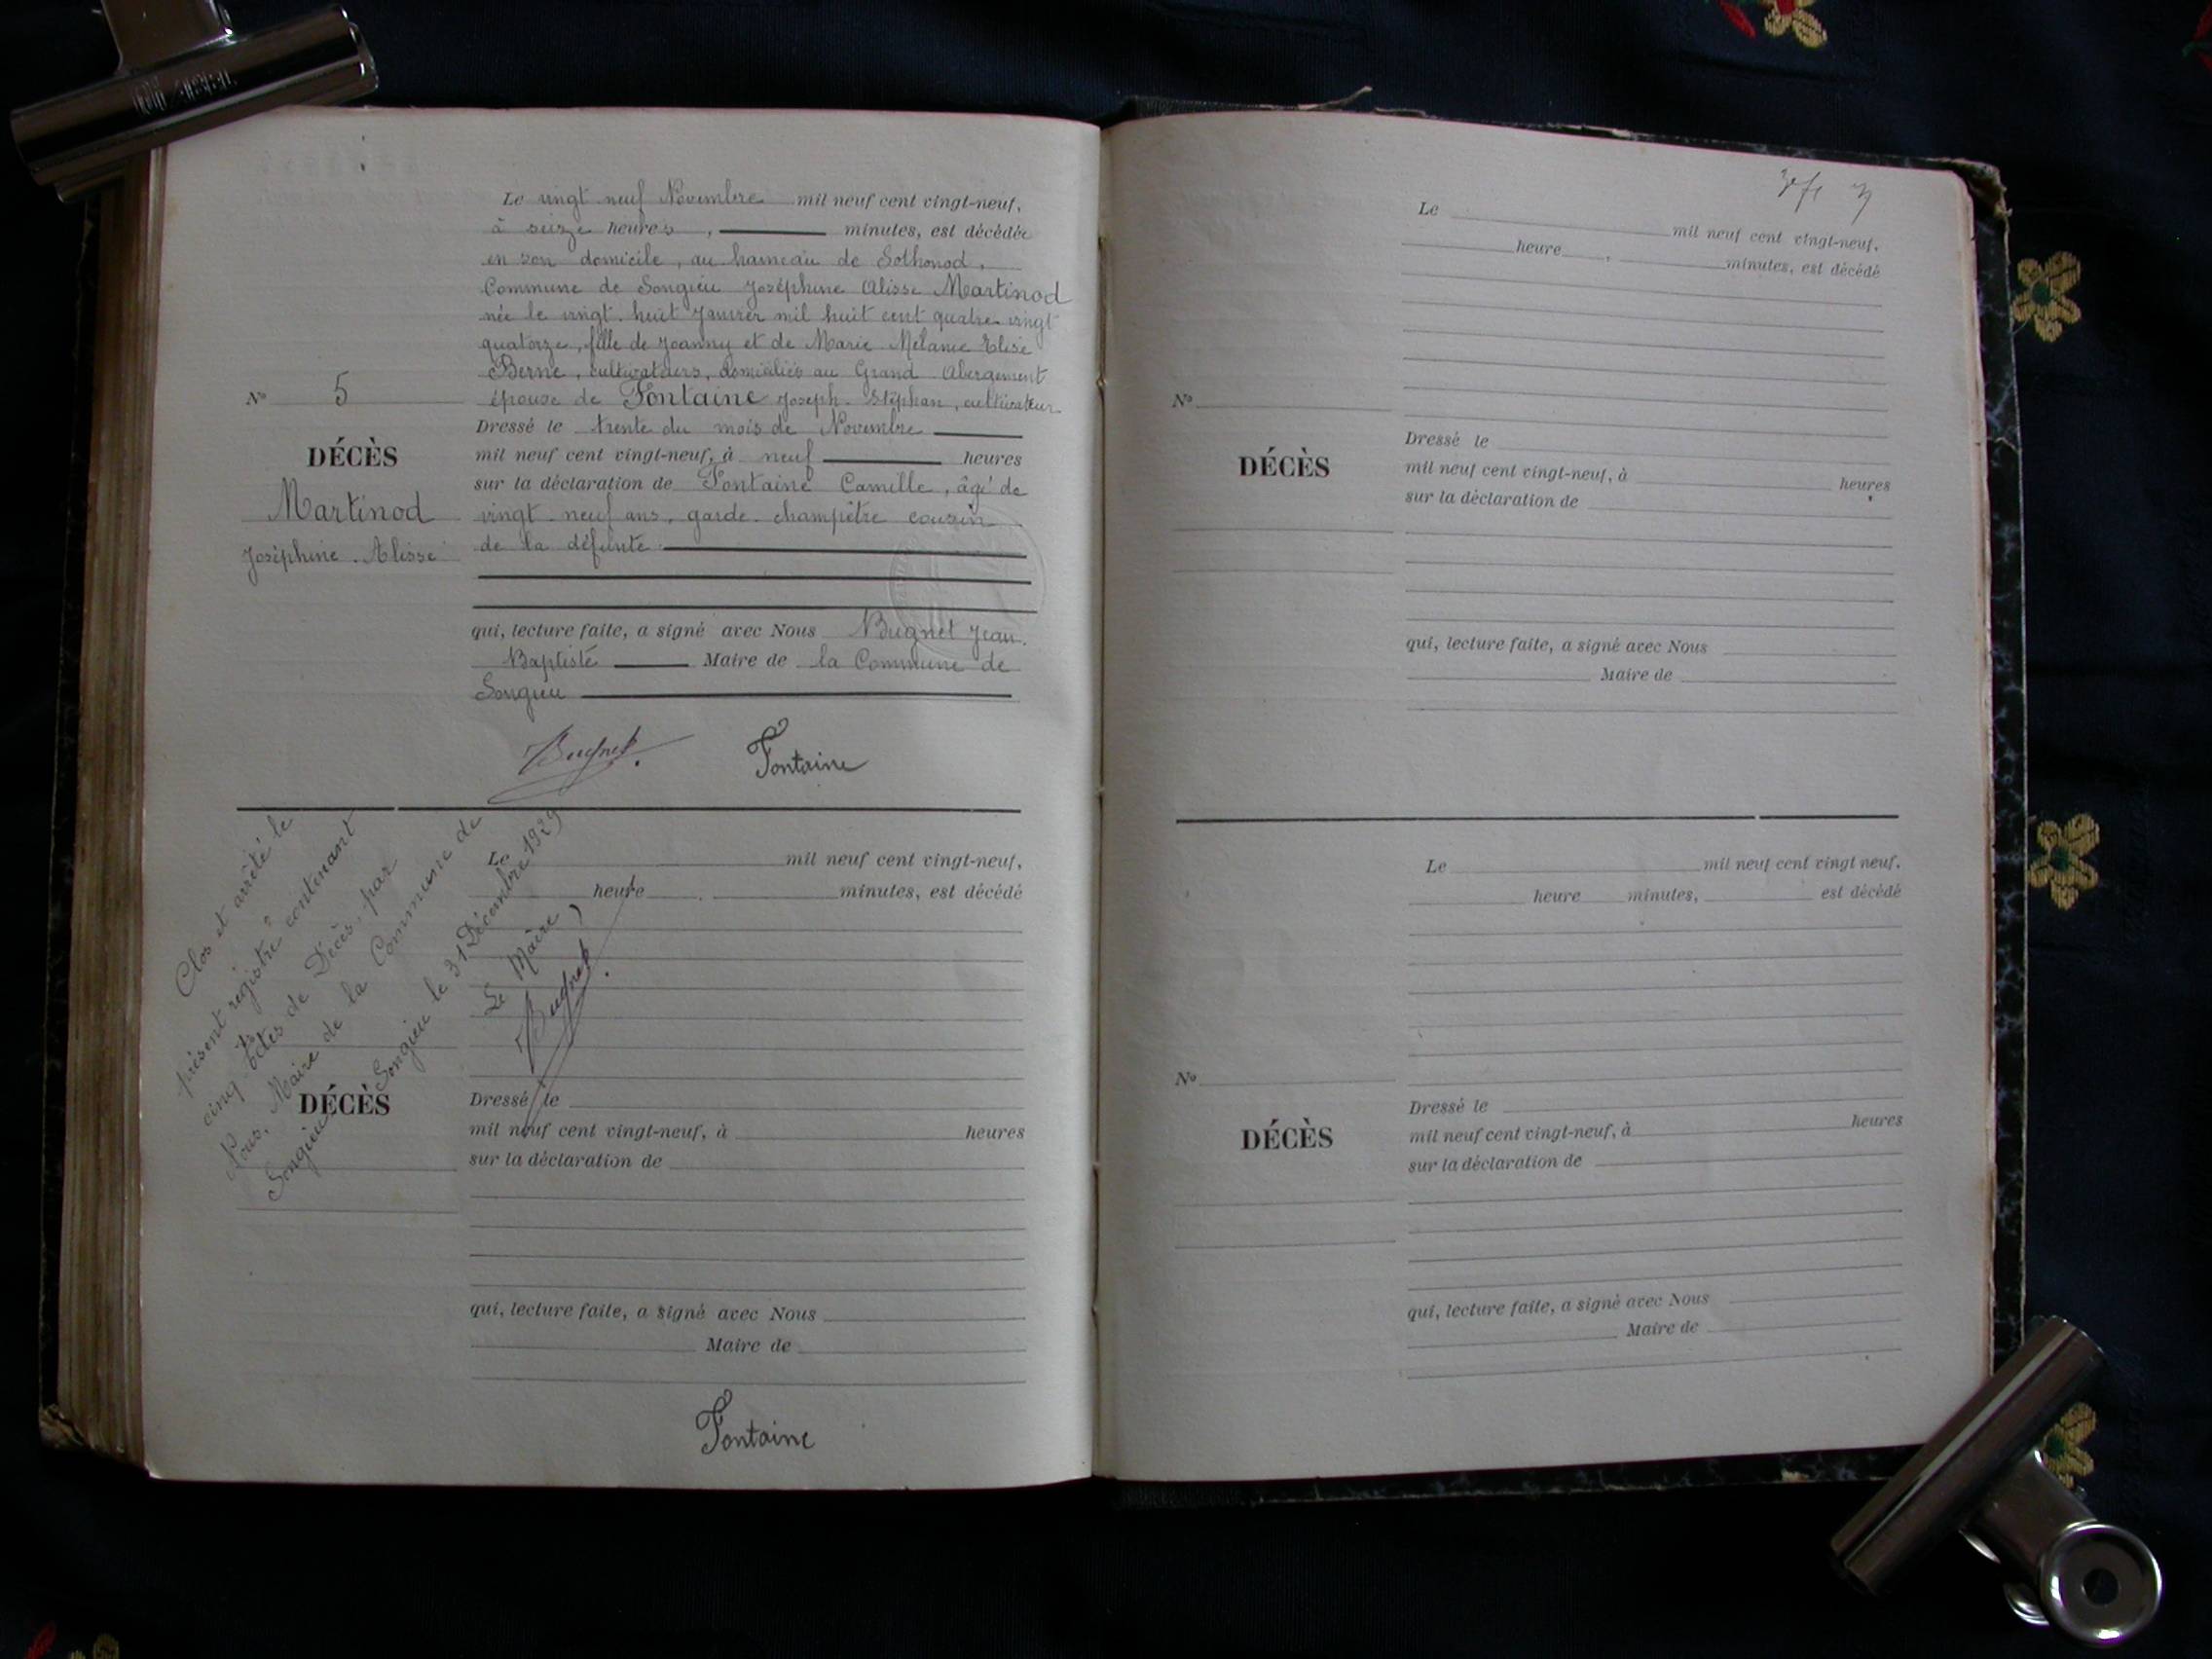 Le vingt neuf Novembre mil neuf cent vingt-neuf,
à seize heures , minutes, est décédée
en son domicile, au hameau de Sothonod,
Commune de Songieu Joséphine Alisse Martinod
née le vingt-huit Janvier mil huit cent quatre-vingt
quatorze, fille de Joanny et de Marie Mélanie Elise
Berne, cultivateurs, domiciliés au Grand Abergement
épouse de Fontaine Joseph-Stéphan, cultivateur
N° 5
DÉCÈS
Martinod
Joséphine. Alisse
Dressé le trente du mois de Novembre
mil neuf cent vingt-neuf, à neuf heures
sur la déclaration de Fontaine Camille, âgé de
vingt-neuf ans, garde-champêtre cousin
de la défunte.
qui, lecture faite, a signé avec Nous Bugnet Jean-
Baptiste Maire de la Commune de
Songieu
Bugnet Fontaine
Clos et arrêté le
présent registre contenant
cinq actes de Décès, par
Nous, Maire de la Commune de
Songieu
Songieu le 31 Décembre 1929
Le Maire,
Bugnet
Le mil neuf cent vingt-neuf,
heure , minutes, est décédé
DÉCÈS
Dressé le
mil neuf cent vingt-neuf, à heures
sur la déclaration de
qui, lecture faite, a signé avec Nous
Maire de
Fontaine
Le mil neuf cent vingt-neuf,
heure , minutes, est décédé
N°
DÉCÈS
Dressé le
mil neuf cent vingt-neuf, à heures
sur la déclaration de
qui, lecture faite, a signé avec Nous
Maire de
Le mil neuf cent vingt neuf,
heure minutes, est décédé
N°
DÉCÈS
Dressé le
mil neuf cent vingt-neuf, à heures
sur la déclaration de
qui, lecture faite, a signé avec Nous
Maire de